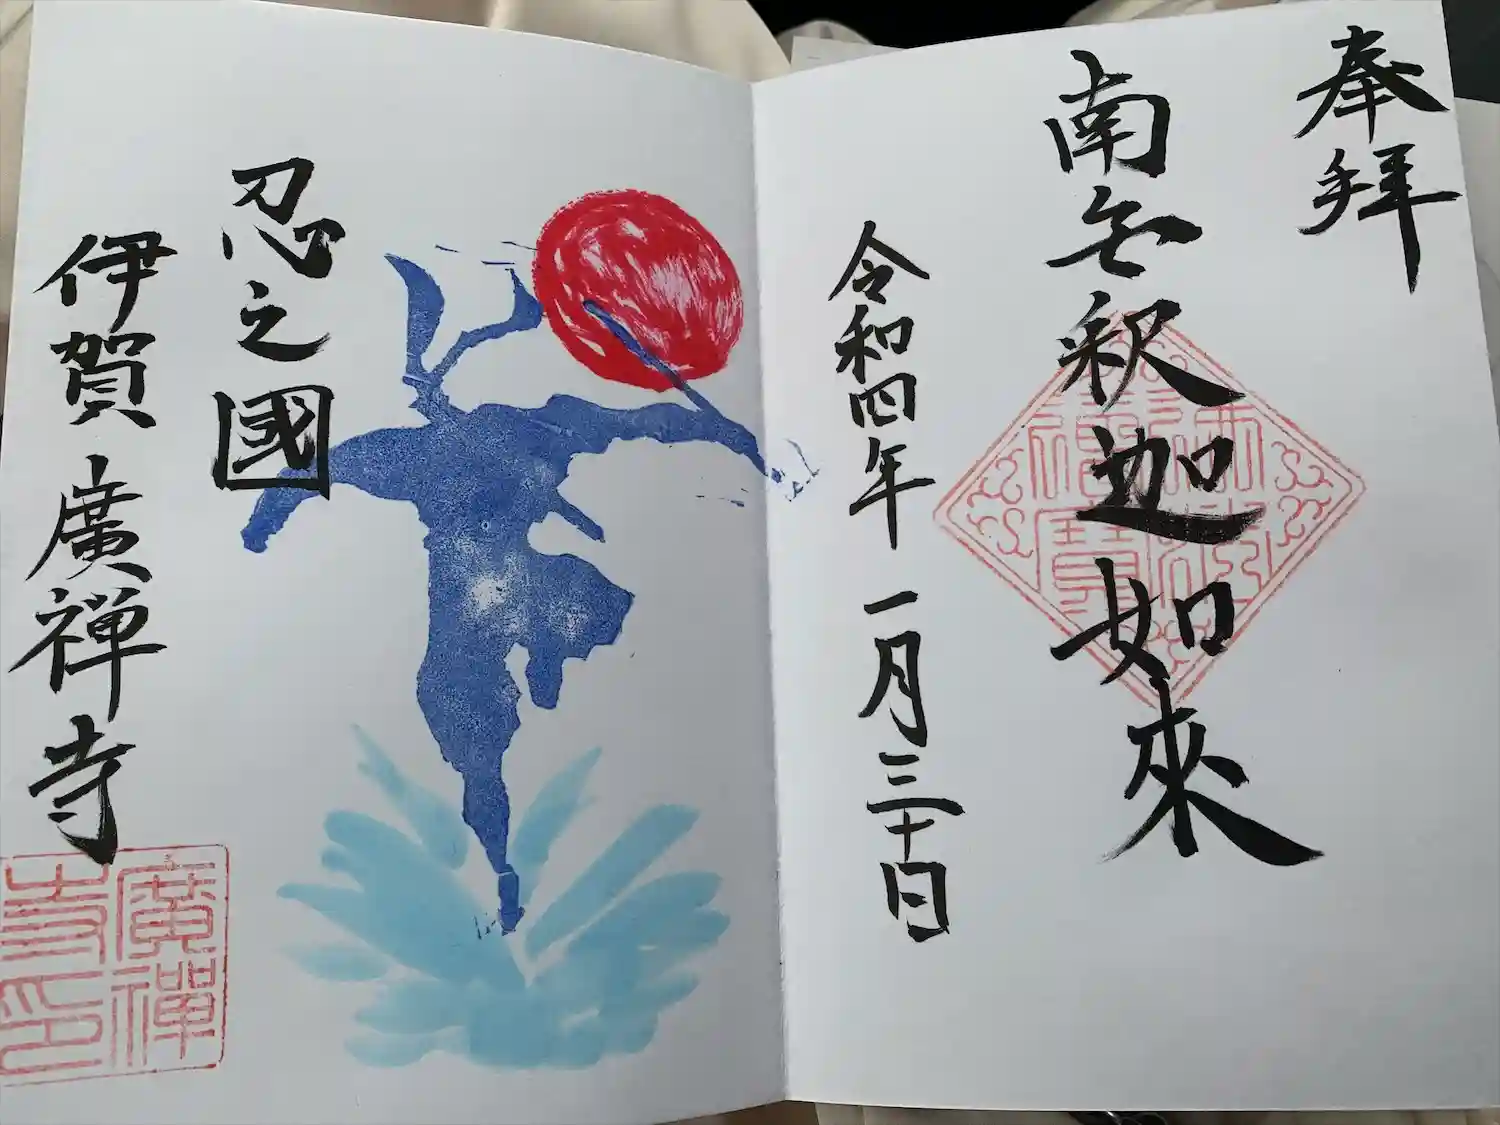 奉拝
南無釈迦如來
令和四年一月三十日
忍之國
伊賀廣禅寺
廣禅寺印